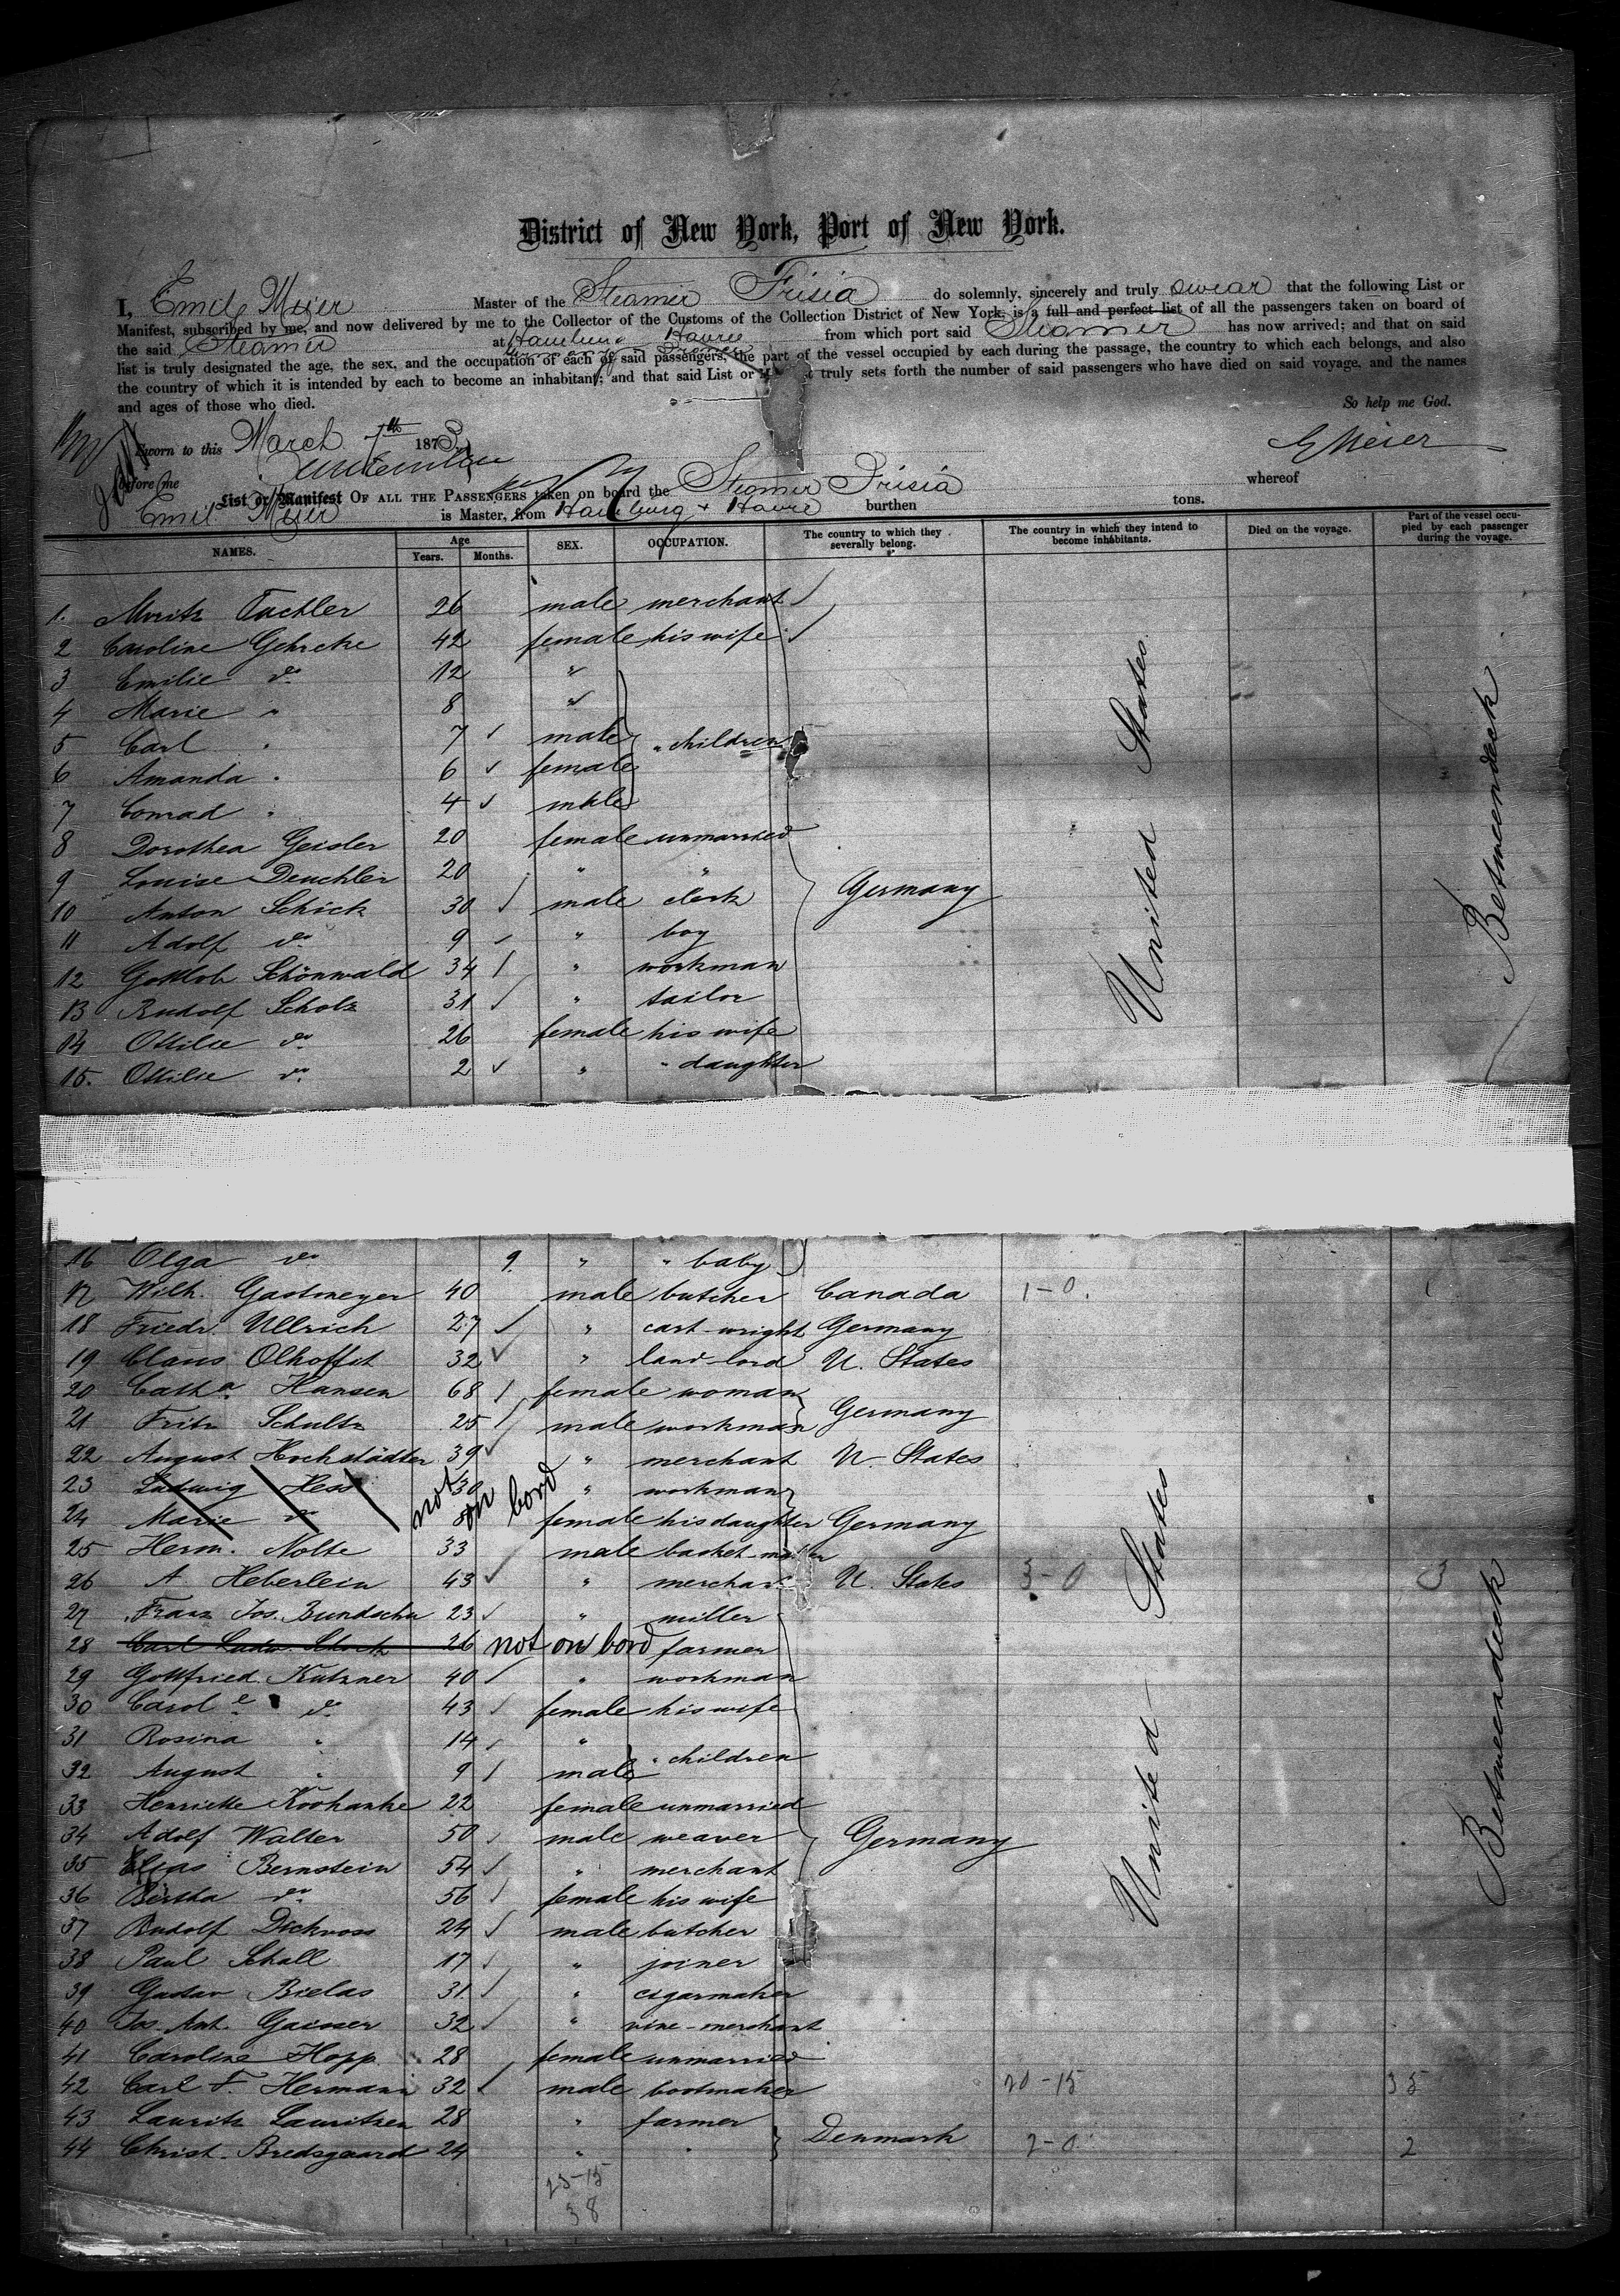 District of New York, Port of New York.
I, Emil Meier Master of the Steamer Frisia do solemnly, sincerely and truly swear that the following List or
Manifest, subscribed by me, and now delivered by me to the Collector of the Customs of the Collection District of New York, is a full and perfect list of all the passengers taken on board of
the said Steamer at Hamburg Havre from which port said Steamer has now arrived; and that on said
list is truly designated the age, the sex, and the occupation of each of said passengers, the part of the vessel occupied by each during the passage, the country to which each belongs, and also
the country of which it is intended by each to become an inhabitant; and that said List or truly sets forth the number of said passengers who have died on said voyage, and the names
and ages of those who died. So help me God.
Sworn to this March 7th 1873 E Meier
before me
List or Manifest OF ALL THE PASSENGERS taken on board the Steamer Frisia whereof
Emil Meier is Master, from Hamburg + Havre burthen tons.
NAMES. Age Years. Months. SEX. OCCUPATION. The country to which they severally belong. The country in which they intend to become inhabitants. Died on the voyage. Part of the vessel occupied by each passenger during the voyage.
1. Moritz Tachler 26 male merchant
2 Caroline Gehrcke 42 female his wife
3 Emilie do 12 "
4 Marie " 8 "
5 Carl " 7 male " children
6 Amanda " 6 female
7 Conrad " 4 male
8 Dorothea Geisler 20 female unmarried
9 Louise Deuchler 20 " "
10 Anton Schick 30 male clerk Germany
11 Adolf do 9 " boy
12 Gottlob Schönwald 34 " workman
13 Rudolf Scholz 31 " tailor
14 Ottilie do 26 female his wife
15. Ottilie do 2 " " daughter
United States
Betweendeck
16 Olga do 9 " " baby
17 Wilh. Gastmeyer 40 male butcher Canada 1-0. 1
18 Friedr. Ullrich 27 " cart-wright Germany
19 Claus Olhofft 32 " land-lord U. States
20 Catha Hansen 68 female woman
21 Fritz Schultz 25 male workman Germany
22 August Hochstädter 39 " merchant U. States
23 Ludwig Hess 30 " workman
not on bord
24 Marie do 8 female his daughter Germany
25 Herm. Nolte 33 male basket-maker
26 A. Heberlein 43 " merchant U. States 3-0 3
27 Franz Jos. Bundschu 23 " miller
28 Carl Ludw. 26 not on bord farmer
29 Gottfried Kutzner 40 " workman
30 Carole do 43 female his wife
31 Rosina " 14 "
32 August " 9 male " children
33 Henriette Koohanke 22 female unmarried
34 Adolf Walter 50 male weaver Germany
35 Elias Bernstein 54 " merchant
36 Bertha do 56 female his wife
37 Rudolf Dickvoss 24 male butcher
38 Paul Schall 17 " joiner
39 Gustav Bielas 31 " cigarmaker
40 Jos. Ant. Gaisser 32 " vine-merchant
41 Caroline Hopp 28 female unmarried
42 Carl F. Hermann 32 male bootmaker 20-15 35
43 Lauritz Lauritzen 28 " farmer
44 Christ. Bredsgaard 24 " " Denmark 2-0 2
United States
Betweendeck
23-15
38